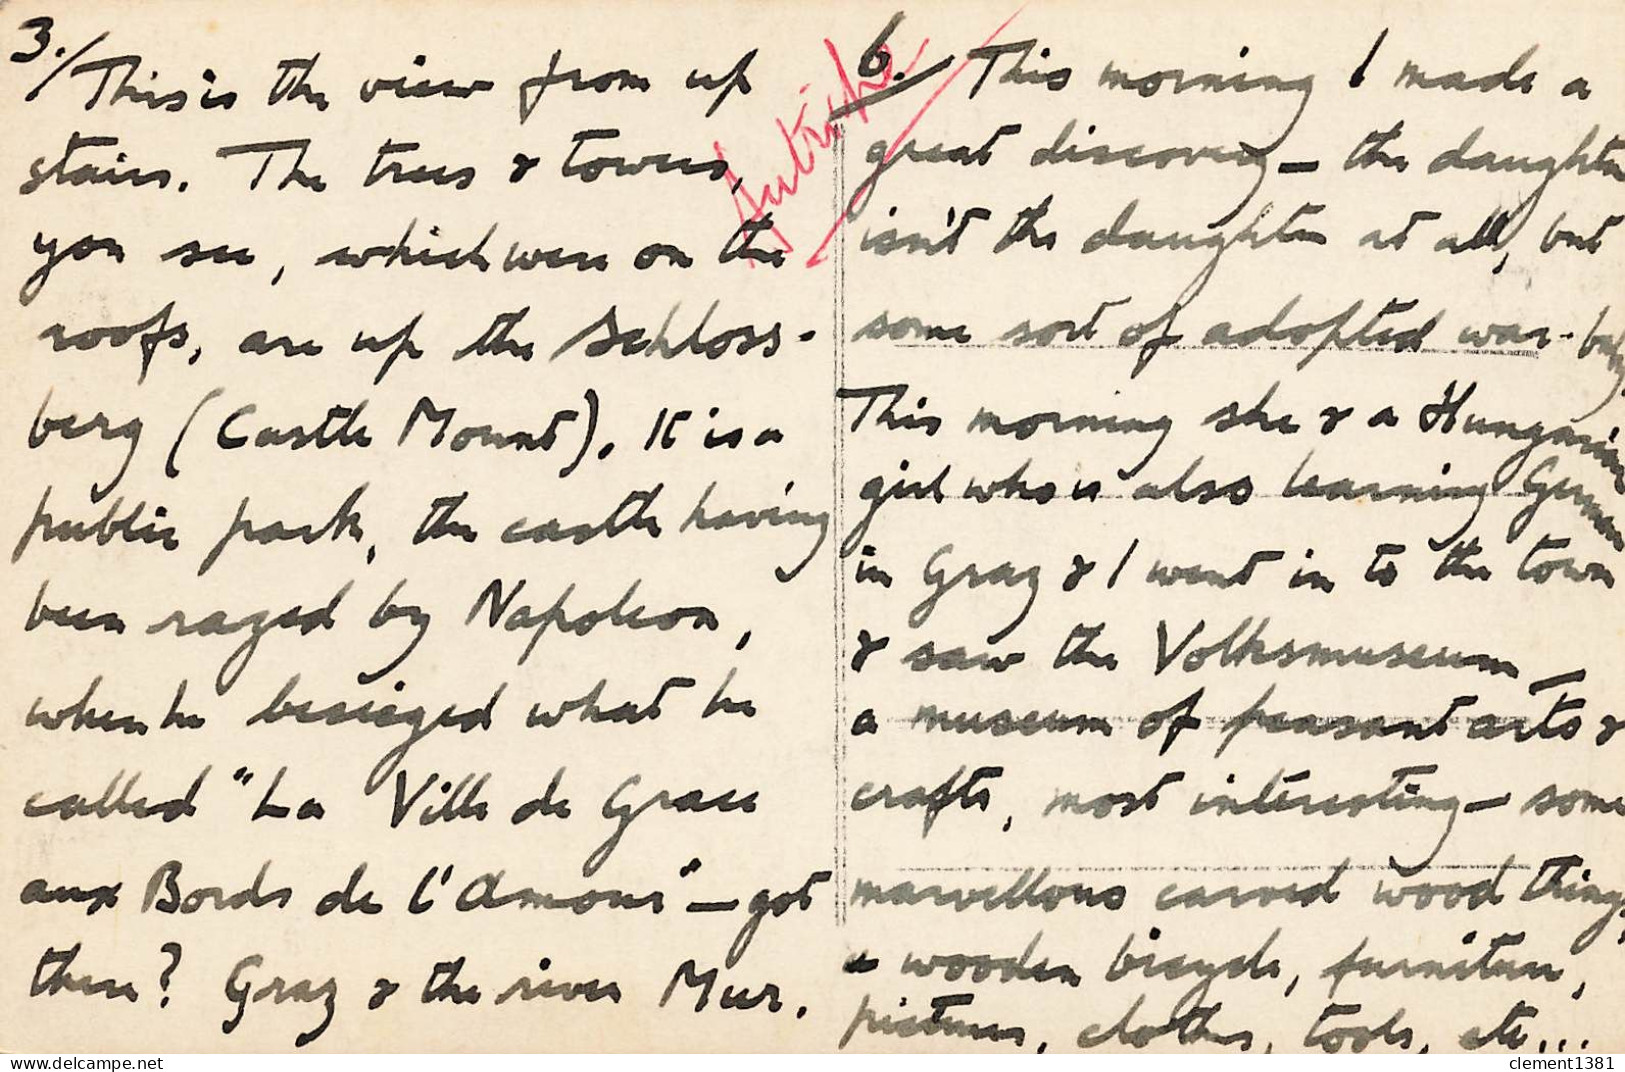 3./ This is the view from up
stairs. The trees & towers,
you see, which were on the
roofs, are up the Schloss-
berg (Castle Mount). It is a
public park, the castle having
been razed by Napoleon,
when he besieged what he
called "La Ville de Grace
aux Bords de l'Amour" — got
there? Graz & the river Mur.
Autriche
6./ This morning I made a
great discovery — the daughter
isn't the daughter at all, but
some sort of adopted war-baby.
This morning she & a Hungarian
girl who is also learning German
in Graz & I went in to the town
& saw the Volksmuseum —
a museum of peasant arts &
crafts, most interesting — some
marvellous carved wood things,
a wooden bicycle, furniture,
pictures, clothes, tools, etc...
delcampe.net
clement1381